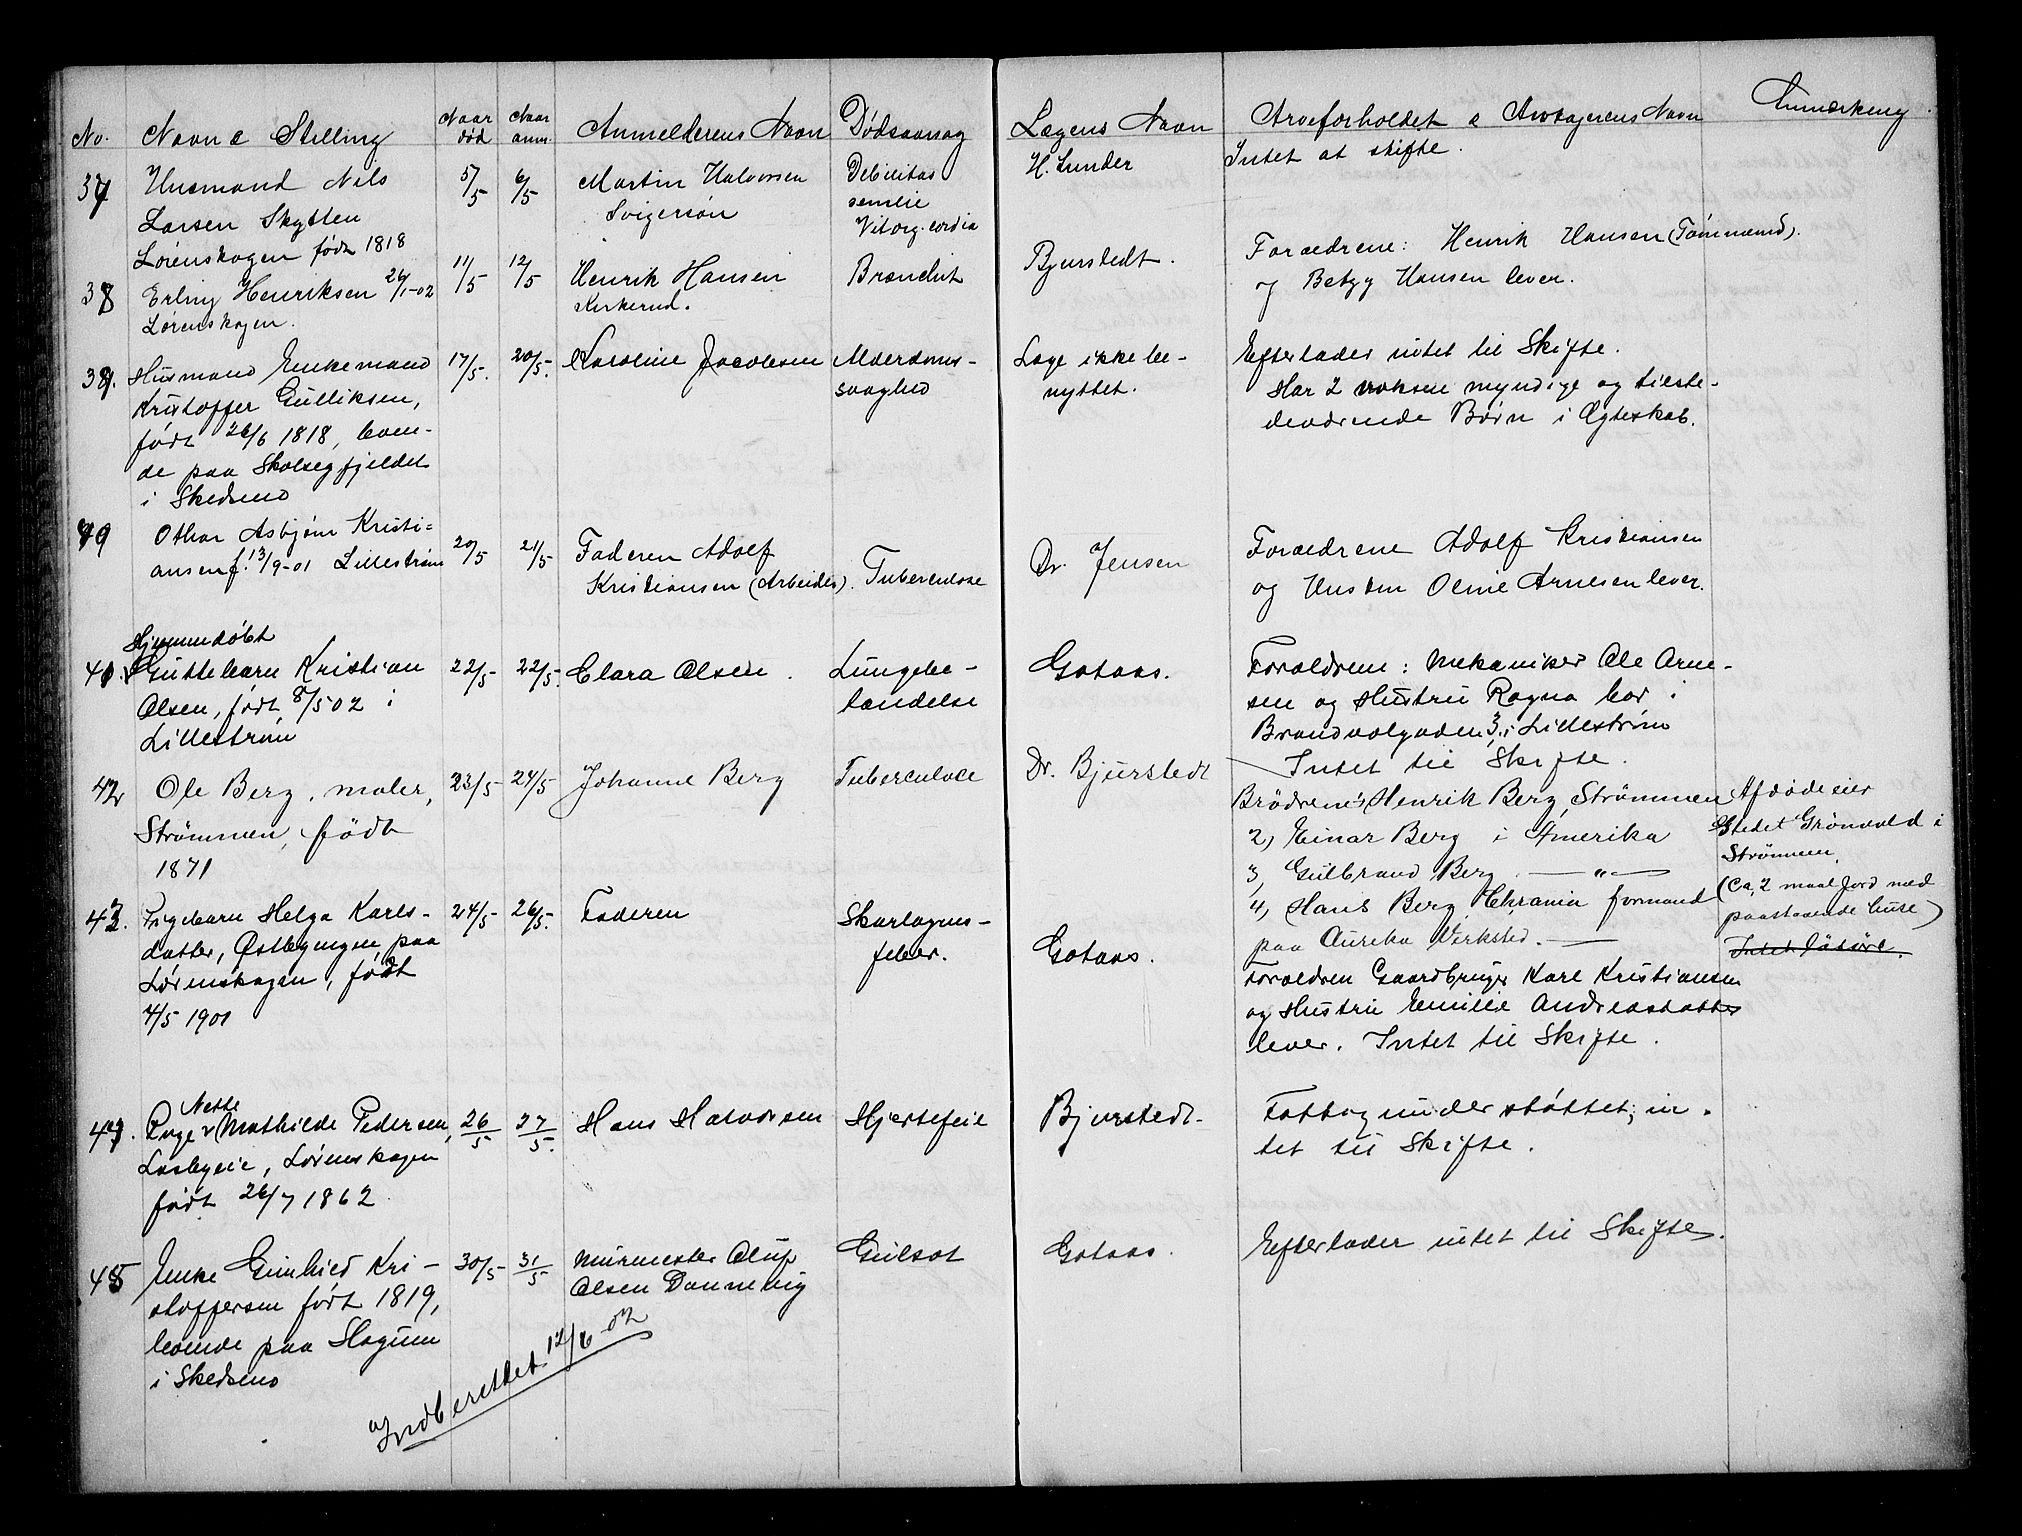 No. Navn & Stilling Naar død Naar anm. Anmelderens Navn Dødsaarsag Lægens Navn Arveforholdet & Arvtagerens Navn Anmærkning
37 Husmand Nils 5/5 6/5 Martin Halvorsen Debilitas H. Lunder Intet at skifte.
Larsen Skytten Svigersøn senilis
Lørenskogen født 1818 Vit. org. cordis
38 Erling Henriksen 26/1-02 11/5 12/5 Henrik Hansen Brændt Bjurstedt. Forældrene: Henrik Hansen (Tømmermd).
Lørenskogen. Kirkerud. og Betzy Hansen lever.
39. Husmand Enkemand 17/5. 20/5. Karoline Jacobsen Alderdoms- Læge ikke be- Efterlader intet til Skifte.
Kristoffer Gulliksen, svaghed nyttet. Har 2 voksne myndige og tilste-
født 26/6 1818, boen- deværende Børn i Ægteskab.
de paa Skolsegfjeldet
i Skedsmo
40 Othar Asbjørn Kristi- 20/5 21/5 Faderen Adolf Tuberculose Dr. Jensen Forældrene Adolf Kristiansen
ansen f. 13/9-01 Lillestrøm Kristiansen (Arbeider). og Hustru Oline Arnesen lever.
Hjemmedøbt
41. Guttebarn Kristian 22/5- 22/5. Clara Olsen. Lungebe- Gotaas. Forældrene: Mekaniker Ole Arne-
Olsen, født 8/5 02 i tændelse sen og Hustru Ragna bor i
Lillestrøm Brandvalgaden 3, i Lillestrøm
Intet til Skifte.
42 Ole Berg, maler, 23/5 24/5 Johanne Berg Tuberculose Dr. Bjurstedt Brødrene: 1, Henrik Berg, Strømmen Afdøde eier
Strømmen, født 2, Einar Berg i Amerika Stedet Grønvold i
1871 3, Gulbrand Berg — " — Strømmen.
4, Hans Berg Chrania formand (Ca. 2 maal Jord med
paa Eureka Verksted. — paastaaende huse)
Intet løsøre.
43. Pigebarn Helga Karls- 24/5- 26/5. Faderen Skarlagens- Gotaas. Forældren Gaardbruger Karl Kristiansen
datter, Østbygningen paa feber. og Hustru Emilie Andreasdatter
Lørenskogen, født lever. Intet til Skifte.
4/5 1901
44. Pige Nette Mathilde Pedersen, 26/5 27/5. Hans Halvorsen Hjertefeil Bjurstedt. Fattigunderstøttet; in-
Losbyeie, Lørenskogen tet til Skifte.
født 26/7 1862
45 Enke Gunhild Kri- 30/5- 31/5 Murmester Oluf Gulsot Gotaas. Efterlader intet til Skifte.
stoffersen født 1819, Olsen Dannevig
boende paa Hagum
i Skedsmo
Indberettet 12/6-02